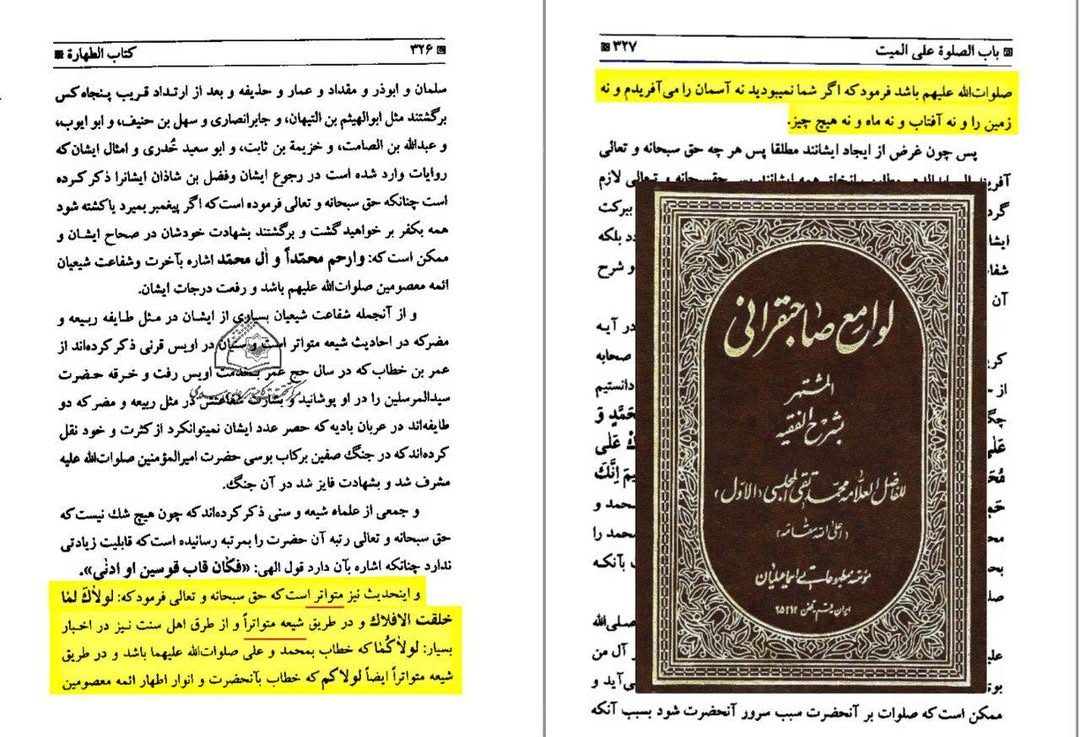 ۳۲۶
كتاب الطهارة
سلمان و ابوذر و مقداد و عمار و حذيفه و بعد از ارتداد قريب پنجاه كس
برگشتند مثل ابوالهيثم بن التيهان، و جابرانصارى و سهل بن حنيف، و ابو ايوب،
و عبدالله بن الصامت، و خزيمة بن ثابت، و ابو سعيد خُدرى و امثال ايشان كه
روايات وارد شده است در رجوع ايشان وفضل بن شاذان ايشانرا ذكر كرده
است چنانكه حق سبحانه و تعالى فرموده است كه اگر پيغمبر بميرد ياكشته شود
همه بكفر بر خواهيد گشت و برگشتند بشهادت خودشان در صحاح ايشان و
ممكن است كه: وارحم محمّداً و اٰل محمّد اشاره بآخرت وشفاعت شيعيان
ائمه معصومين صلوات‌الله عليهم باشد و رفعت درجات ايشان.
و از آنجمله شفاعت شيعيان بسيارى از ايشان در مثل طايفه ربيعه و
مضركه در احاديث شيعه متواتر است و سنيان در اويس قرنى ذكر كرده‌اند از
عمر بن خطاب كه در سال حج عمر بخدمت اويس رفت و خرقه حضرت
سيدالمرسلين را در او پوشانيد و بشارت شفاعتش در مثل ربيعه و مضر كه دو
طايفه‌اند در عربان باديه كه حصر عدد ايشان نميتوانكرد از كثرت و خود نقل
كرده‌اند كه در جنگ صفين بركاب بوسى حضرت اميرالمؤمنين صلوات‌الله عليه
مشرف شد و بشهادت فايز شد در آن جنگ.
و جمعى از علماء شيعه و سنى ذكر كرده‌اند كه چون هيچ شك نيست كه
حق سبحانه و تعالى رتبه آن حضرت را بمرتبه رسانيده است كه قابليت زيادتى
ندارد چنانكه اشاره بآن دارد قول الهى: «فكٰان قاب قوسين او ادنٰى».
و اينحديث نيز متواتر است كه حق سبحانه و تعالى فرمود كه: لولاٰكَ لمٰا
خلقت الافلاك و در طريق شيعه متواتراً و از طرق اهل سنت نيز در اخبار
بسيار: لولاٰكُمٰا كه خطاب بمحمد و على صلوات‌الله عليهما باشد و در طريق
شيعه متواتراً ايضاً لولاكم كه خطاب بآنحضرت و انوار اطهار ائمه معصومين
باب الصلوة على الميت
۳۲۷
صلوات‌الله عليهم باشد فرمود كه اگر شما نميبوديد نه آسمان را مى‌آفريدم و نه
زمين را و نه آفتاب و نه ماه و نه هيچ چيز.
پس چون غرض از ايجاد ايشانند مطلقا پس هر چه حق سبحانه و تعالى
لازم
بركت
و شرح
آن
در آيه
صحابه
دانستيم
محمد و
محمد را
بآنكه
صلى‌الله
آل من
لوامع صاحبقرانى
المشتهر
بشرح الفقيه
للفاضل العلامه محمد تقى المجلسى (الاول)
(اعلى الله مقامه)
مؤسسه مطبوعاتى اسماعيليان
ممكن است كه صلوات بر آنحضرت سبب سرور آنحضرت شود بسبب آنكه